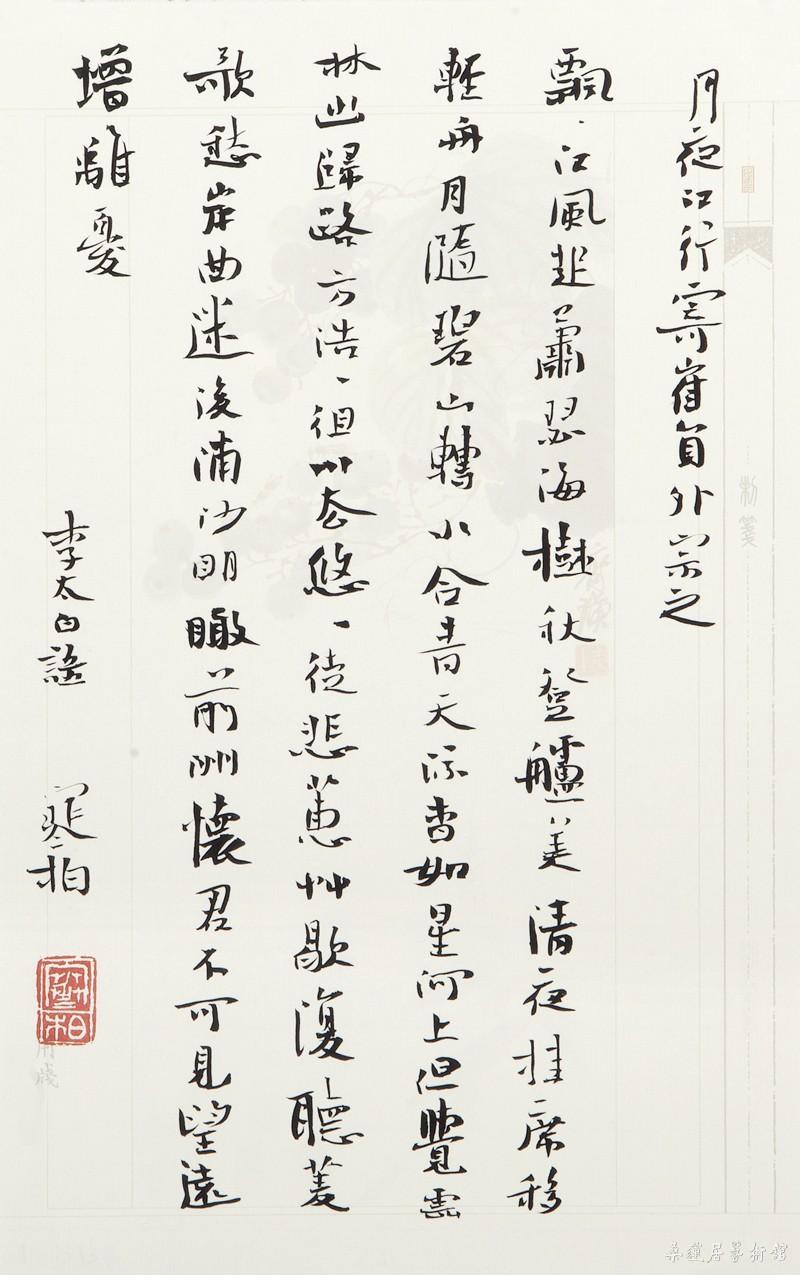 月夜江行寄崔員外宗之
飄、江風起蕭瑟海樹秋登艫美清夜挂席移
輕舟月隨碧山轉水合青天流杳如星河上但覺雲
林幽歸路方浩、徂川去悠、徒悲蕙艸歇復聽菱
歌愁岸曲迷後浦沙明瞰前洲懷君不可見望遠
增離憂
李太白謠 寒柏
寒柏
桑蓮居藝術館